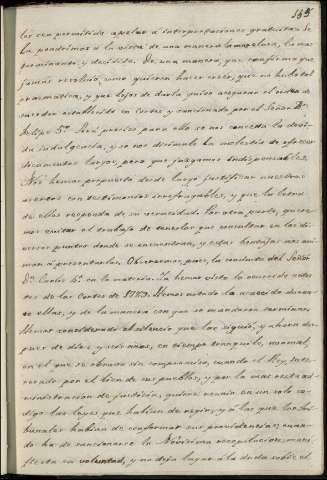 135
les sea permitido apelar a interpretaciones gratuitas. Se
la pondremos á la vista de una manera la mas clara, la mas
terminante y decisiva. De una manera, que confirme que
jamas revolvió, como quisiera hacer creer, que no hubo tal
pracmatica, y que lejos de darla quiso asegurar el orden de
suceder establecido en Cortes y sancionado por el Señor Dn.
Felipe 5º. Será preciso para ello se nos conceda la devi-
da indulgencia, y se nos disimule la molestia de ofrecer
documentos largos, pero que juzgamos indispensables.
Nos hemos propuesto desde luego justificar nuestros
asertos con testimonios irrefragables, y que la letra
de ellos responda de su veracidad. Por otra parte, quere-
mos evitar el trabajo de tenerlos que consultar en los di-
versos puntos donde se encuentran, y estas ventajas nos ani-
man á presentarlos. Observemos, pues, la conducta del Señor
Dn. Carlos 4º. en la materia. Ya hemos visto lo acaecido antes
de las Cortes de 1789. Hemos notado lo acaecido duran-
te ellas, y de la manera con que se mandaron terminar.
Hemos considerado el silencio que las siguió, y ahora des-
pues de diez y seis años, en tiempo tranquilo, normal,
en el que se obraba sin compromiso, cuando el Rey, inte-
resado por el bien de sus pueblos, y por la mas recta ad-
ministracion de justicia, quiere reunir en un solo có-
digo las leyes que habian de regir, y á las que los tri-
bunales habian de conformar sus providencias; cuan-
do ha de sancionarse la Novisima recopilacion, mani-
fiesta su voluntad, y no deja lugar á la duda sobre el